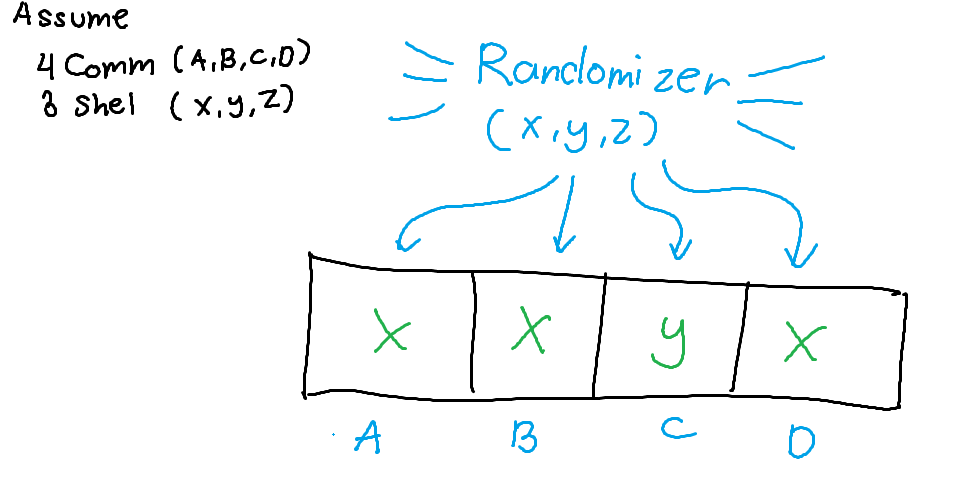 Assume
4 Comm (A,B,C,D)
3 Shel (x,y,z)
Randomizer
(x,y,z)
X X y X
A B C D